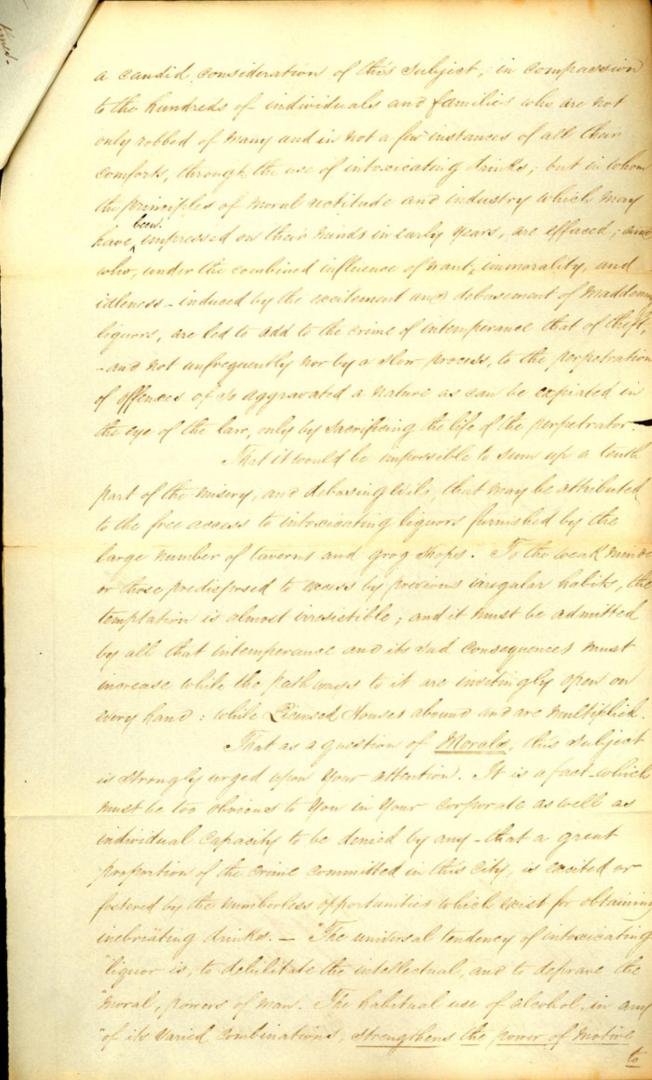 a candid consideration of this subject, in compassion
to the hundreds of individuals and families who are not
only robbed of many and in not a few instances of all their
comforts, through the use of intoxicating drinks; but in whom
the principles of moral rectitude and industry which may
have been impressed on their minds in early years, are effaced; and
who, under the combined influence of want, immorality, and
idleness - induced by the excitement and debasement of maddening
liquors, are led to add to the crime of intemperance that of theft,
- and not unfrequently nor by a slow process, to the perpetration
of offences of so aggravated a nature as can be expiated in
the eye of the law, only by sacrificing the life of the perpetrator.
That it would be impossible to sum up a tenth
part of the misery, and debasing that may be attributed
to the free access to intoxicating liquors furnished by the
large number of taverns and grog shops. To the weak minded
or those predisposed to excess by previous irregular habits, the
temptation is almost irresistible; and it must be admitted
by all that intemperance and its sad consequences must
increase while the path ways to it are invitingly open on
every hand: while Licensed Houses abound and are multiplied.
That as a question of Morals, this subject
is strongly urged upon your attention. It is a fact which
must be too obvious to You in Your corporate as well as
individual capacity to be denied by any - that a great
proportion of the crime committed in this city, is excited or
fostered by the numberless opportunities which exist for obtaining
inebriating drinks. - "The universal tendency of intoxicating
"liquor is, to debilitate the intellectual, and to deprave the
"moral, powers of man. The habitual use of alcohol, in any
"of its varied combinations, strengthens the power of motive
to